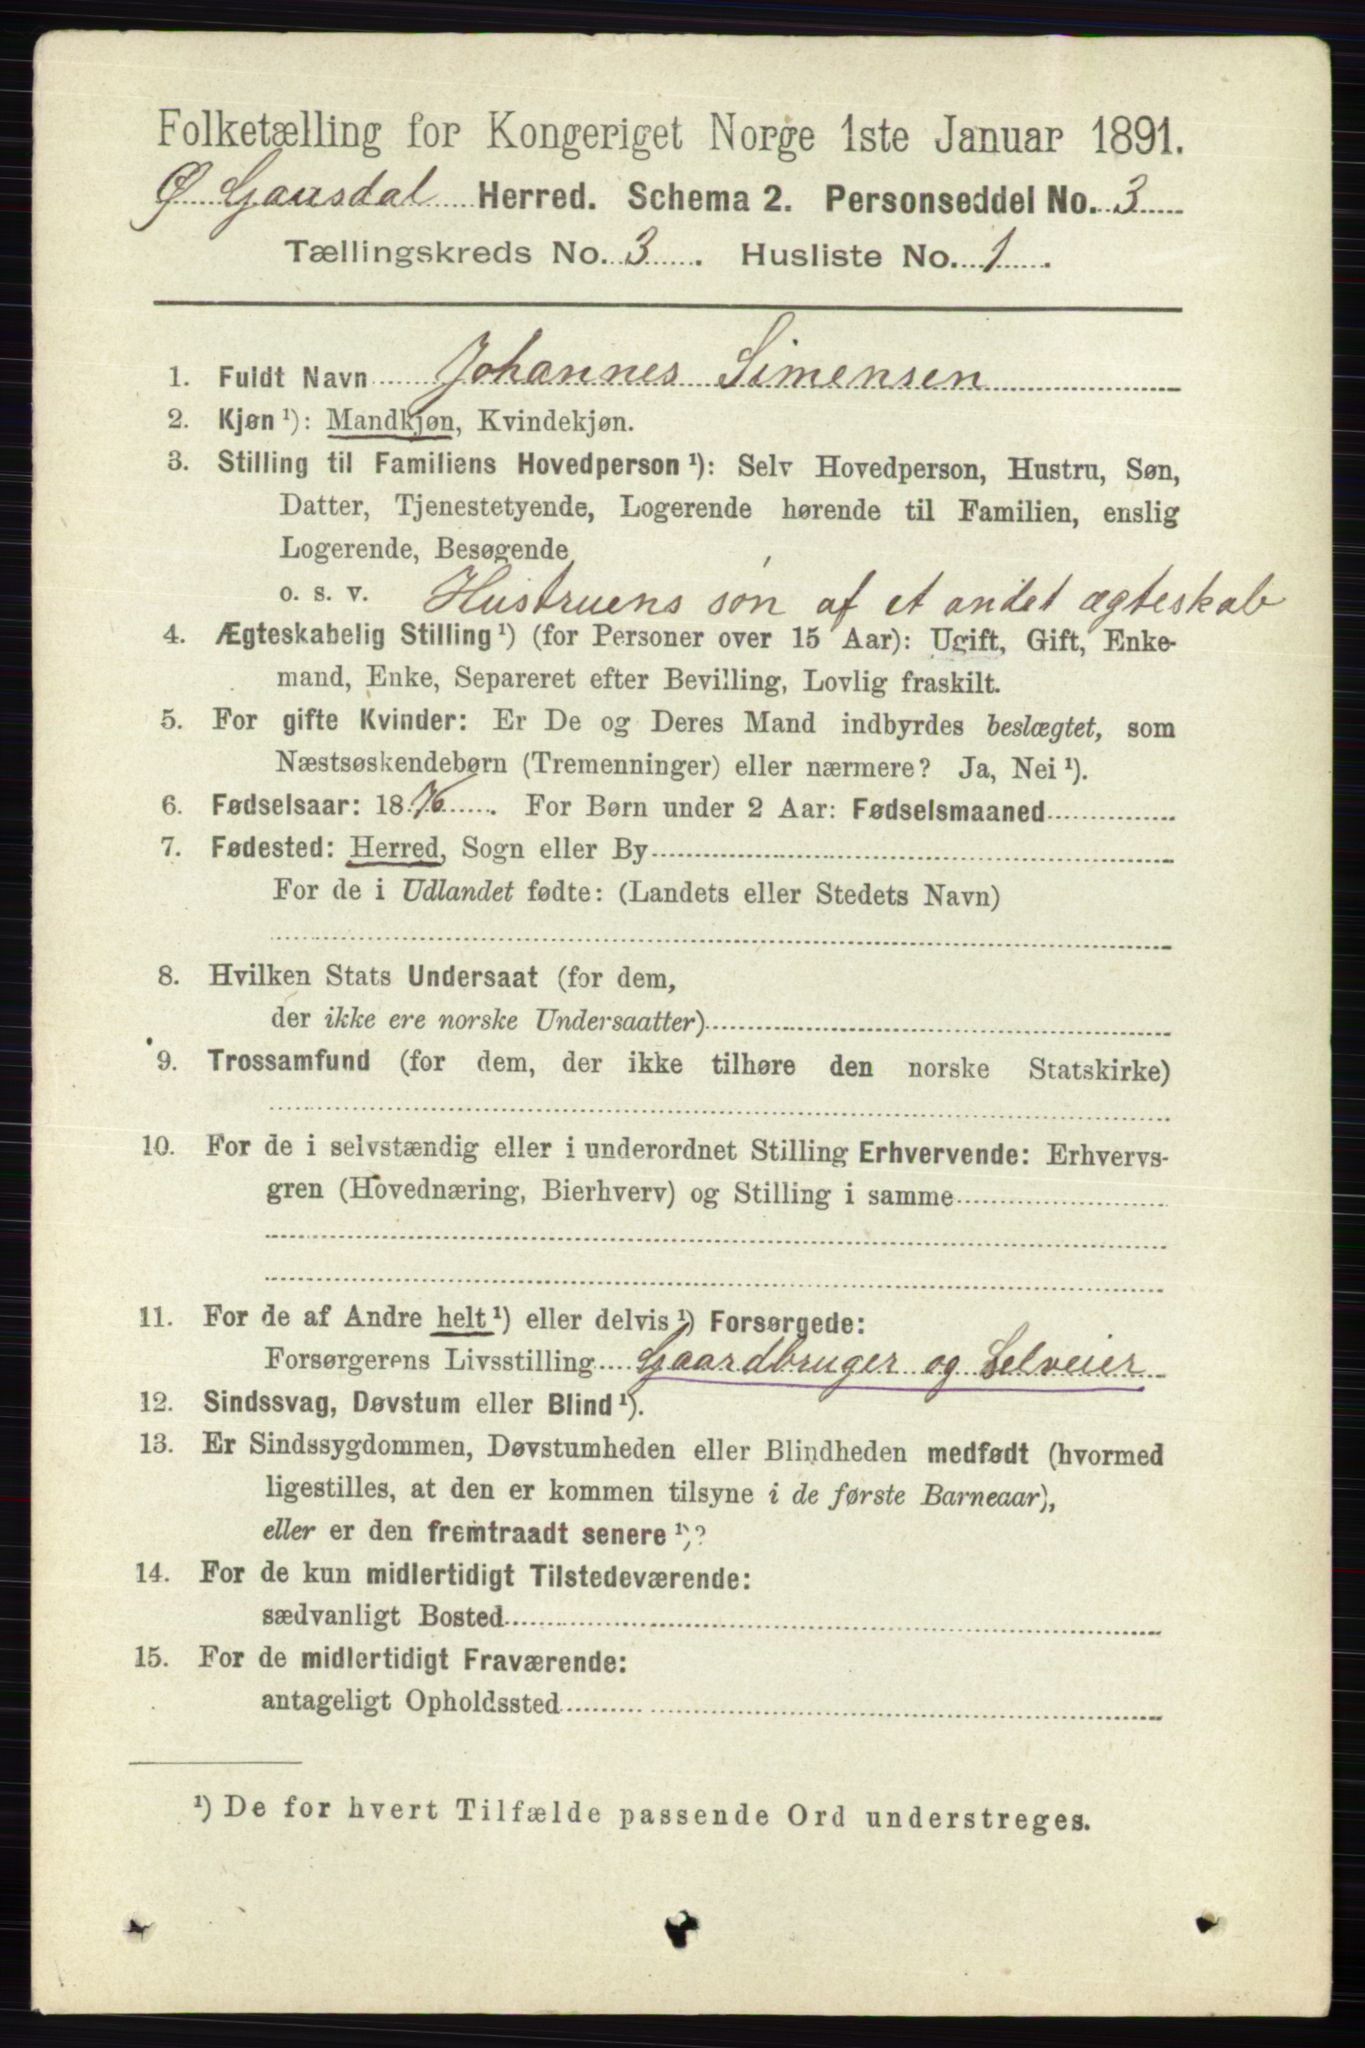 Folketælling for Kongeriget Norge 1ste Januar 1891.
Ø Gausdal Herred. Schema 2. Personseddel No. 3
Tællingskreds No. 3. Husliste No. 1.
1. Fuldt Navn Johannes Simensen
2. Kjøn ¹): Mandkjøn, Kvindekjøn.
3. Stilling til Familiens Hovedperson ¹): Selv Hovedperson, Hustru, Søn,
Datter, Tjenestetyende, Logerende hørende til Familien, enslig
Logerende, Besøgende
o. s. v. Hustruens søn af et andet ægteskab
4. Ægteskabelig Stilling ¹) (for Personer over 15 Aar): Ugift, Gift, Enke-
mand, Enke, Separeret efter Bevilling, Lovlig fraskilt.
5. For gifte Kvinder: Er De og Deres Mand indbyrdes beslægtet, som
Næstsøskendebørn (Tremenninger) eller nærmere? Ja, Nei ¹).
6. Fødselsaar: 1876. For Børn under 2 Aar: Fødselsmaaned
7. Fødested: Herred, Sogn eller By
For de i Udlandet fødte: (Landets eller Stedets Navn)
8. Hvilken Stats Undersaat (for dem,
der ikke ere norske Undersaatter)
9. Trossamfund (for dem, der ikke tilhøre den norske Statskirke)
10. For de i selvstændig eller i underordnet Stilling Erhvervende: Erhvervs-
gren (Hovednæring, Bierhverv) og Stilling i samme
11. For de af Andre helt ¹) eller delvis ¹) Forsørgede:
Forsørgerens Livsstilling Gaardbruger og Selveier
12. Sindssvag, Døvstum eller Blind ¹).
13. Er Sindssygdommen, Døvstumheden eller Blindheden medfødt (hvormed
ligestilles, at den er kommen tilsyne i de første Barneaar),
eller er den fremtraadt senere ¹)?
14. For de kun midlertidigt Tilstedeværende:
sædvanligt Bosted
15. For de midlertidigt Fraværende:
antageligt Opholdssted
¹) De for hvert Tilfælde passende Ord understreges.